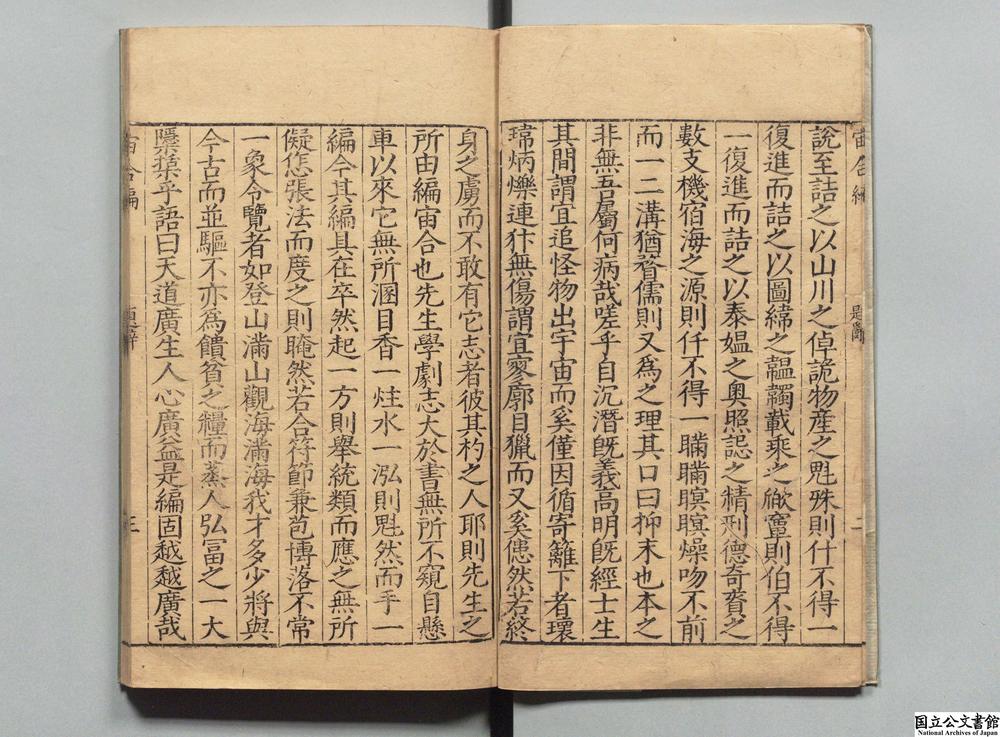 宙合編
題辭
二
說至詰之以山川之倬詭物產之魁殊則什不得一
復進而詰之以圖緯之韞韣載乘之㠜竁則伯不得
一復進而詰之以泰媼之奧照誋之精刑德奇賌之
數支機宿海之源則仟不得一瞞瞞瞑瞑燥吻不前
而一二溝猶瞀儒則又為之理其口曰抑末也本之
非無吾屬何病哉嗟乎自沉潛旣義高明旣經士生
其間謂宜追怪物出宇宙而奚僅因循寄籬下者環
瑋炳爍連犿無傷謂宜寥廓目獵而又奚僡然若終
身之虜而不敢有它志者彼其杓之人耶則先生之
所由編宙合也先生學劇志大於書無所不窺自懸
車以來它無所溷目香一炷水一泓則魁然而手一
編今其編具在卒然起一方則舉統類而應之無所
儗㤰張法而度之則晻然若合符節兼苞博落不常
一象令覽者如登山滿山觀海滿海我才多少將與
今古而並驅不亦為饋貧之糧而蒸人弘富之一大
隱栝乎語曰天道廣生人心廣益是編固越越廣哉
宙合編
題辭
三
国立公文書館
National Archives of Japan